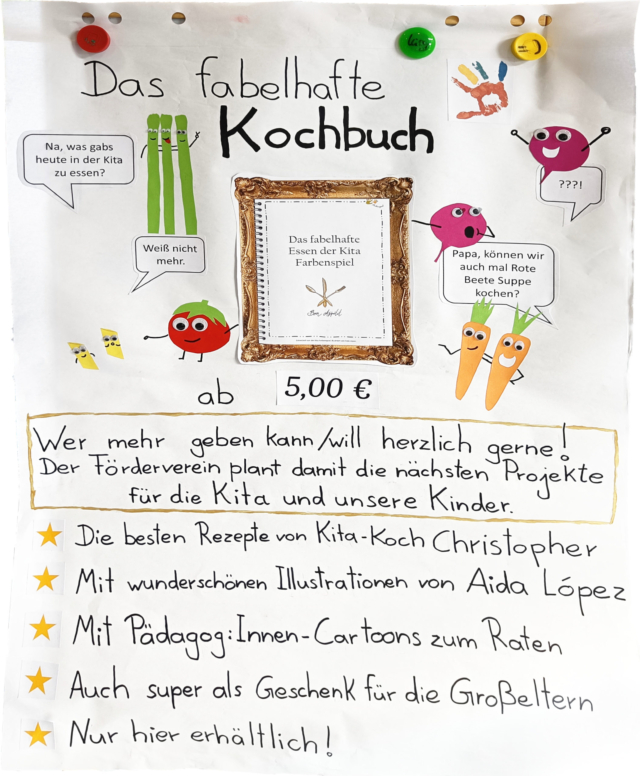 Das fabelhafte
Kochbuch
Na, was gabs
heute in der Kita
zu essen?
???!
Weiß nicht
mehr.
Das fabelhafte
Essen der Kita
Farbenspiel
Papa, können wir
auch mal Rote
Beete Suppe
kochen?
ab 5,00 €
Wer mehr geben kann/will herzlich gerne!
Der Förderverein plant damit die nächsten Projekte
für die Kita und unsere Kinder.
Die besten Rezepte von Kita-Koch Christopher
Mit wunderschönen Illustrationen von Aida López
Mit Pädagog:Innen-Cartoons zum Raten
Auch super als Geschenk für die Großeltern
Nur hier erhältlich!